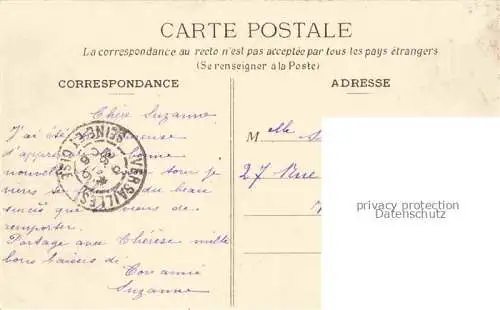 CARTE POSTALE
La correspondance au recto n'est pas acceptée par tous les pays étrangers
(Se renseigner à la Poste)
CORRESPONDANCE
ADRESSE
Chère Suzanne
J'ai été
d'apprendre bonne
nouvelle
du beau
succès que de
remporter.
Partage avec Thérèse mille
bons baisers de
Ton amie
Suzanne
VERSAILLES
SEINE-ET-OISE
Melle
27 Rue
protected
Datenschutz